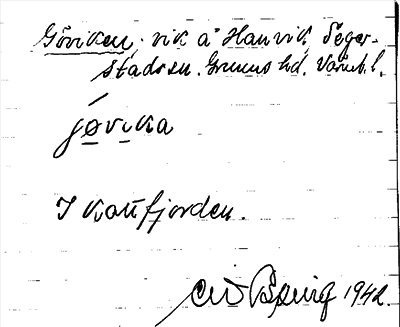 Göviken, vik å Hanvik, Seger-
stads sn. Grums hd. Värml. l.
jøvika
I Kattfjorden.
1942.